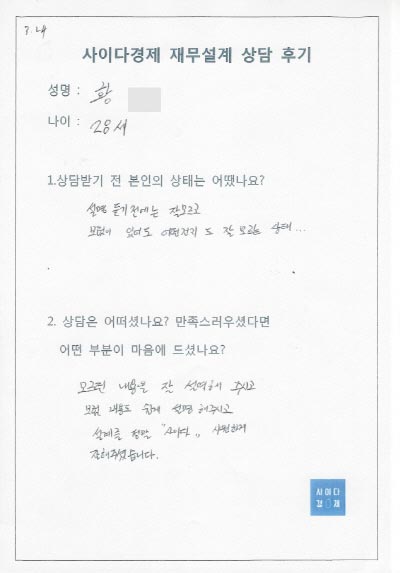 7.24
사이다경제 재무설계 상담 후기
성명 : 황
나이 : 28세
1.상담받기 전 본인의 상태는 어땠나요?
설명 듣기전에는 잘모르고
보험이 있어도 어떤건지 도 잘 모르는 상태...
2. 상담은 어떠셨나요? 만족스러우셨다면
어떤 부분이 마음에 드셨나요?
모르던 내용을 잘 설명해 주시고
보험 내용도 쉽게 설명 해주시고
설계를 정말 "사이다"
주셨습니다.
사이다
경제